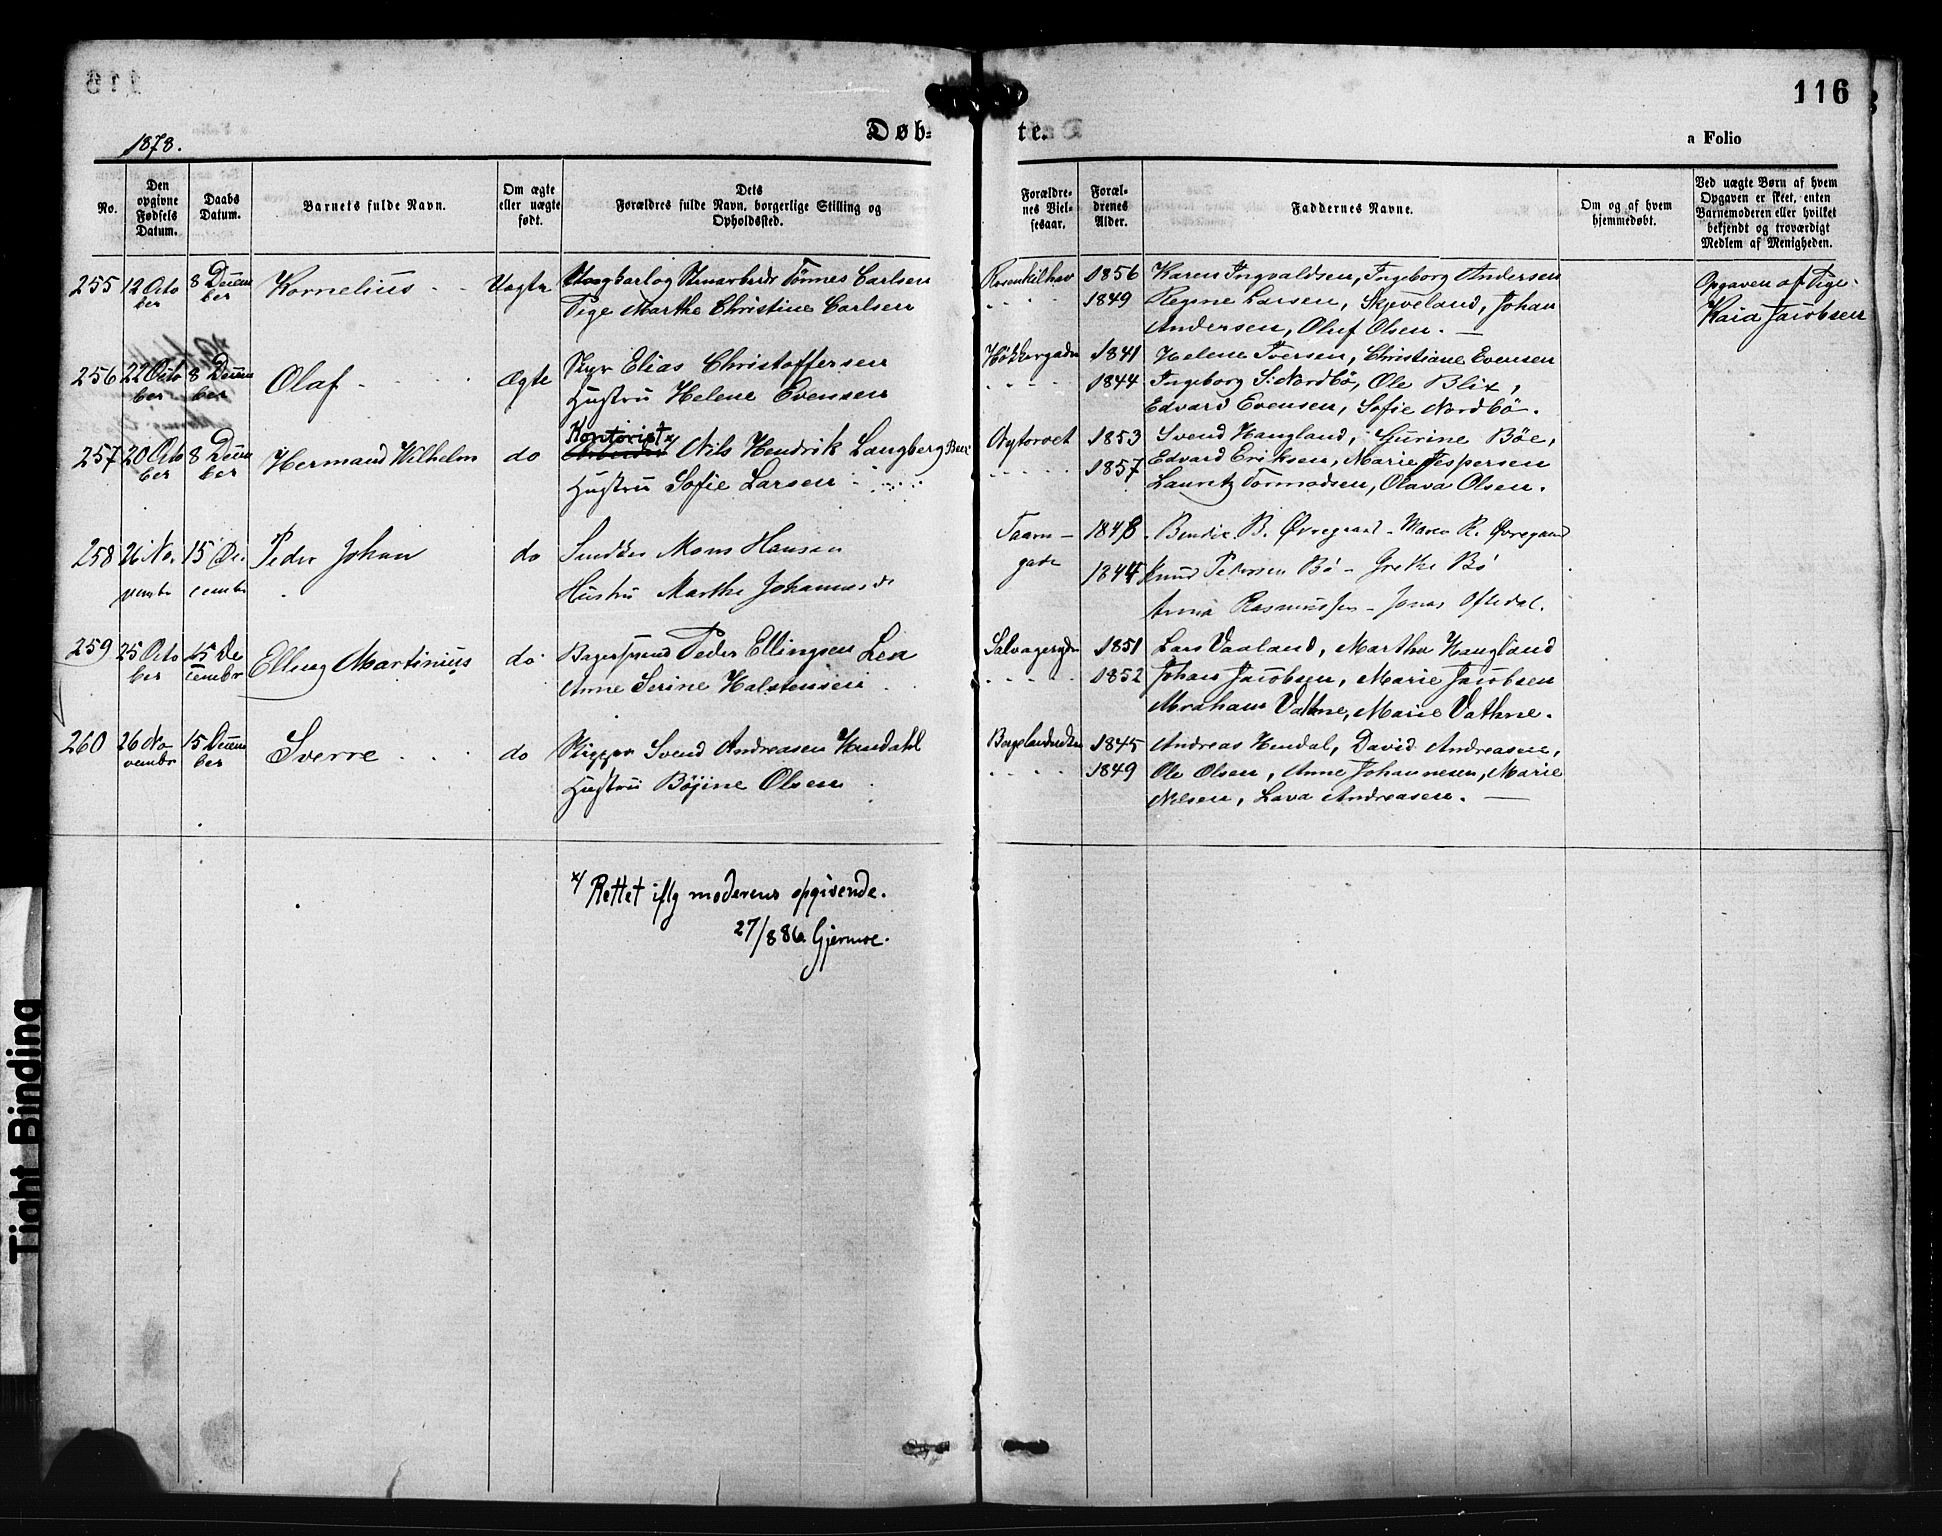 116
1878.
Døb-
te.
a Folio
No.
Den opgivne Fødsels Datum.
Daabs Datum.
Barnets fulde Navn.
Om ægte eller uægte født.
Dets Forældres fulde Navn, borgerlige Stilling og Opholdssted.
Forældrenes Vielsesaar.
Forældrenes Alder.
Faddernes Navne.
Om og af hvem hjemmedøbt.
Ved uægte Børn af hvem Opgaven er skeet, enten Barnemoderen eller hvilket bekjendt og troværdigt Medlem af Menigheden.
255 12 Octo 8 Decem Kornelius Uægte Tönnes Carlsen 1856 Karen Ingvaldsen, Ingeborg Andersen Opgaven af Pige
ber ber Pige Marthe Christine Carlsen 1849 Regine Larsen, Skjeveland, Johan Kaia Jacobsen
Andersen, Oluf Olsen.
256 22 Octo 8 Decem Olaf Ægte Elias Christoffersen 1841 Helene Iversen, Christiane Evensen
ber ber Hustru Helene Evensen 1844 Ingeborg S. Nordbö, Ole Blix,
Edvard Evensen, Sofie Nordbö.
Kontorist x
257 20 Octo 8 Decem Hermand Wilhelm do Arbeider Nils Hendrik Langberg Nytorvet 1853 Svend Haugland, Gurine Böe,
ber ber Hustru Sofie Larsen 1857 Edvard Eriksen, Marie Jespersen
Lauritz Tormodsen, Olava Olsen.
258 26 No 15 De Peder Johan do Mons Hansen Taarn- 1848 B. Øvregaard - Maren R. Øvregaard
vembr cembr Hustru Marthe gade 1844 Knud Petersen Bö - Grethe Bö
Anna Rasmussen - Jonas Oftedal.
259 25 Octo 15 De Elling Martinius do Bagersvend Peder Ellingsen Lea 1851 Lars Vaaland, Martha Haugland
ber cembr Anne Serine Halstensen 1852 Johan Jacobsen, Marie Jacobsen
Abraham Vathne, Marie Vathne.
260 26 No 15 Decem Sverre do Skipper Svend Andreasen 1845 Andreas Hendal, David Andreasen,
vembr ber Hustru Böjine Olsen 1849 Ole Olsen, Anne Johannesen, Marie
Nilsen, Lava Andreasen.
x/ Rettet iflg moderens opgivende.
27/8 86 Gjermoe.
Tight Binding